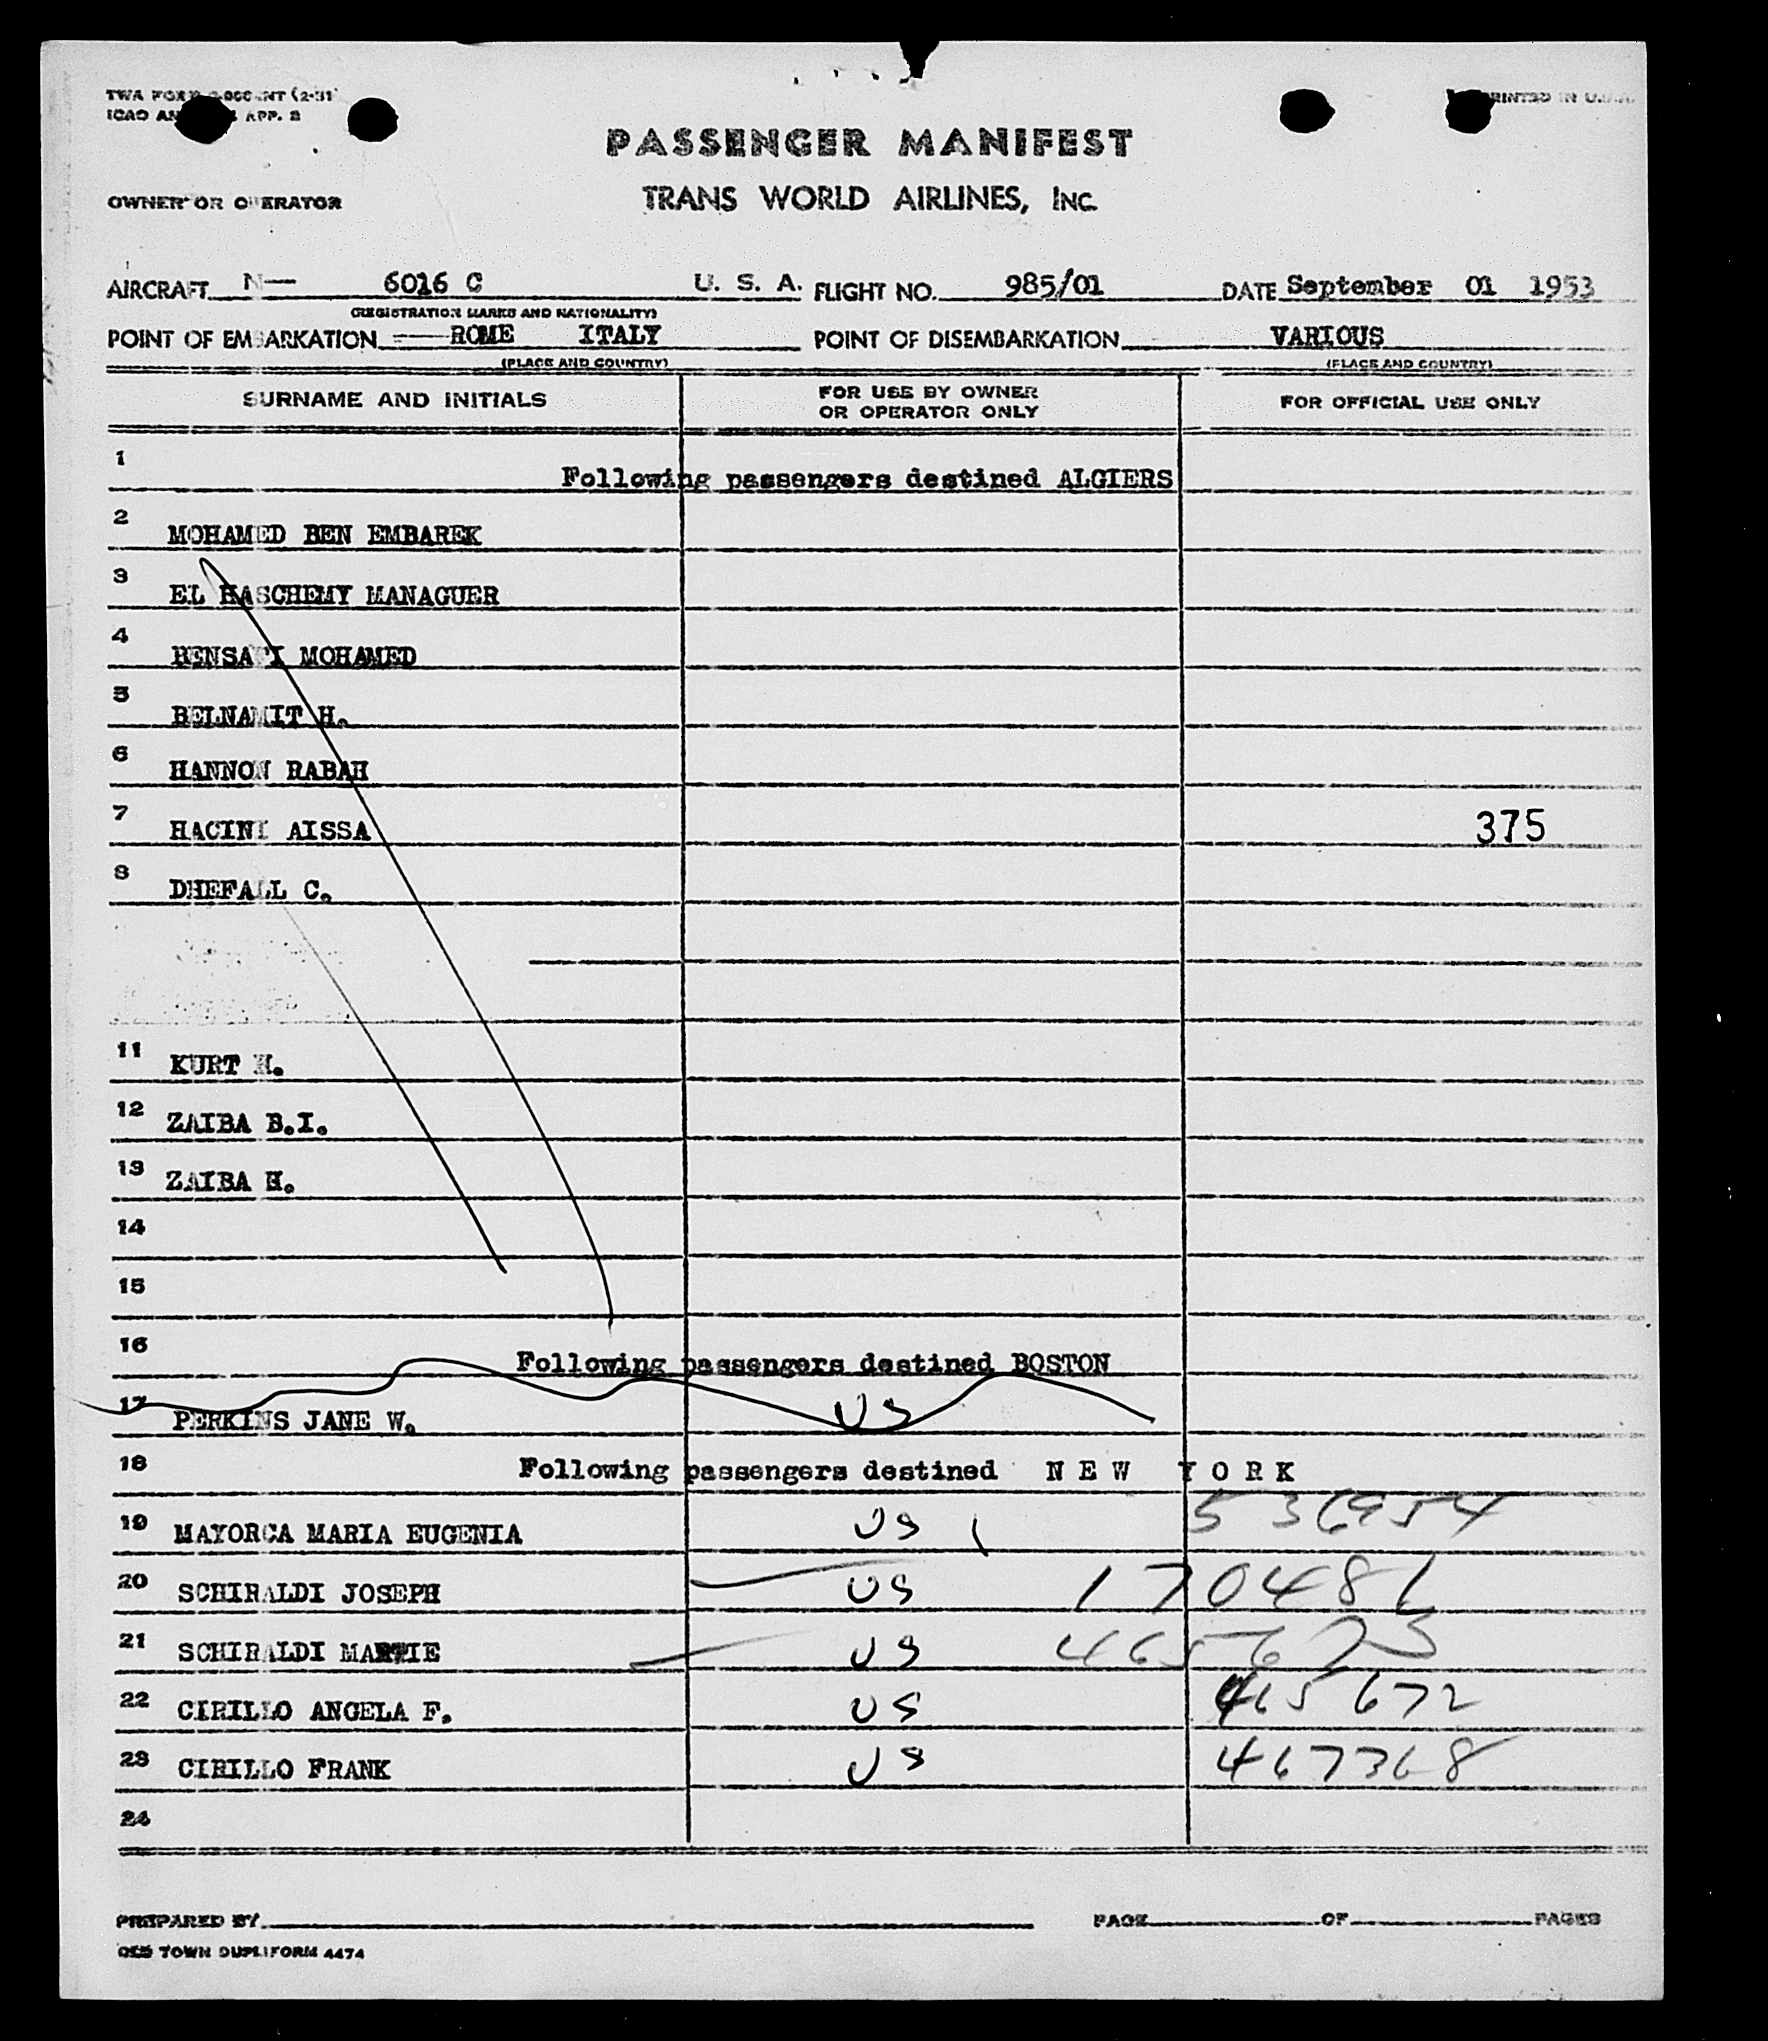 PASSENGER MANIFEST
OWNER OR OPERATOR TRANS WORLD AIRLINES, INC.
AIRCRAFT N— 6016 C U. S. A. FLIGHT NO. 985/01 DATE September 01 1953
(REGISTRATION MARKS AND NATIONALITY)
POINT OF EMBARKATION ROME ITALY POINT OF DISEMBARKATION VARIOUS
(PLACE AND COUNTRY) (PLACE AND COUNTRY)
SURNAME AND INITIALS FOR USE BY OWNER OR OPERATOR ONLY FOR OFFICIAL USE ONLY
1 Following passengers destined ALGIERS
2 MOHAMED BEN EMBAREK
3 EL HASCHEMY MANAGUER
4 MOHAMED
5 BELNAMIT H.
6 HANNON RABAH
7 HACINI AISSA 375
8 DHEFALL C.
11 KURT H.
12 ZAIBA B.I.
13 ZAIBA H.
14
15
16 Following passengers destined BOSTON
17 PERKINS JANE W. US
18 Following passengers destined N E W Y O R K
19 MAYORCA MARIA EUGENIA US 536954
20 SCHIRALDI JOSEPH US 170481
21 SCHIRALDI US 465673
22 CIRILLO ANGELA F. US 465672
23 CIRILLO FRANK US 467368
24
PREPARED BY PAGE OF PAGES
OLD TOWN DUPLIFORM 4474